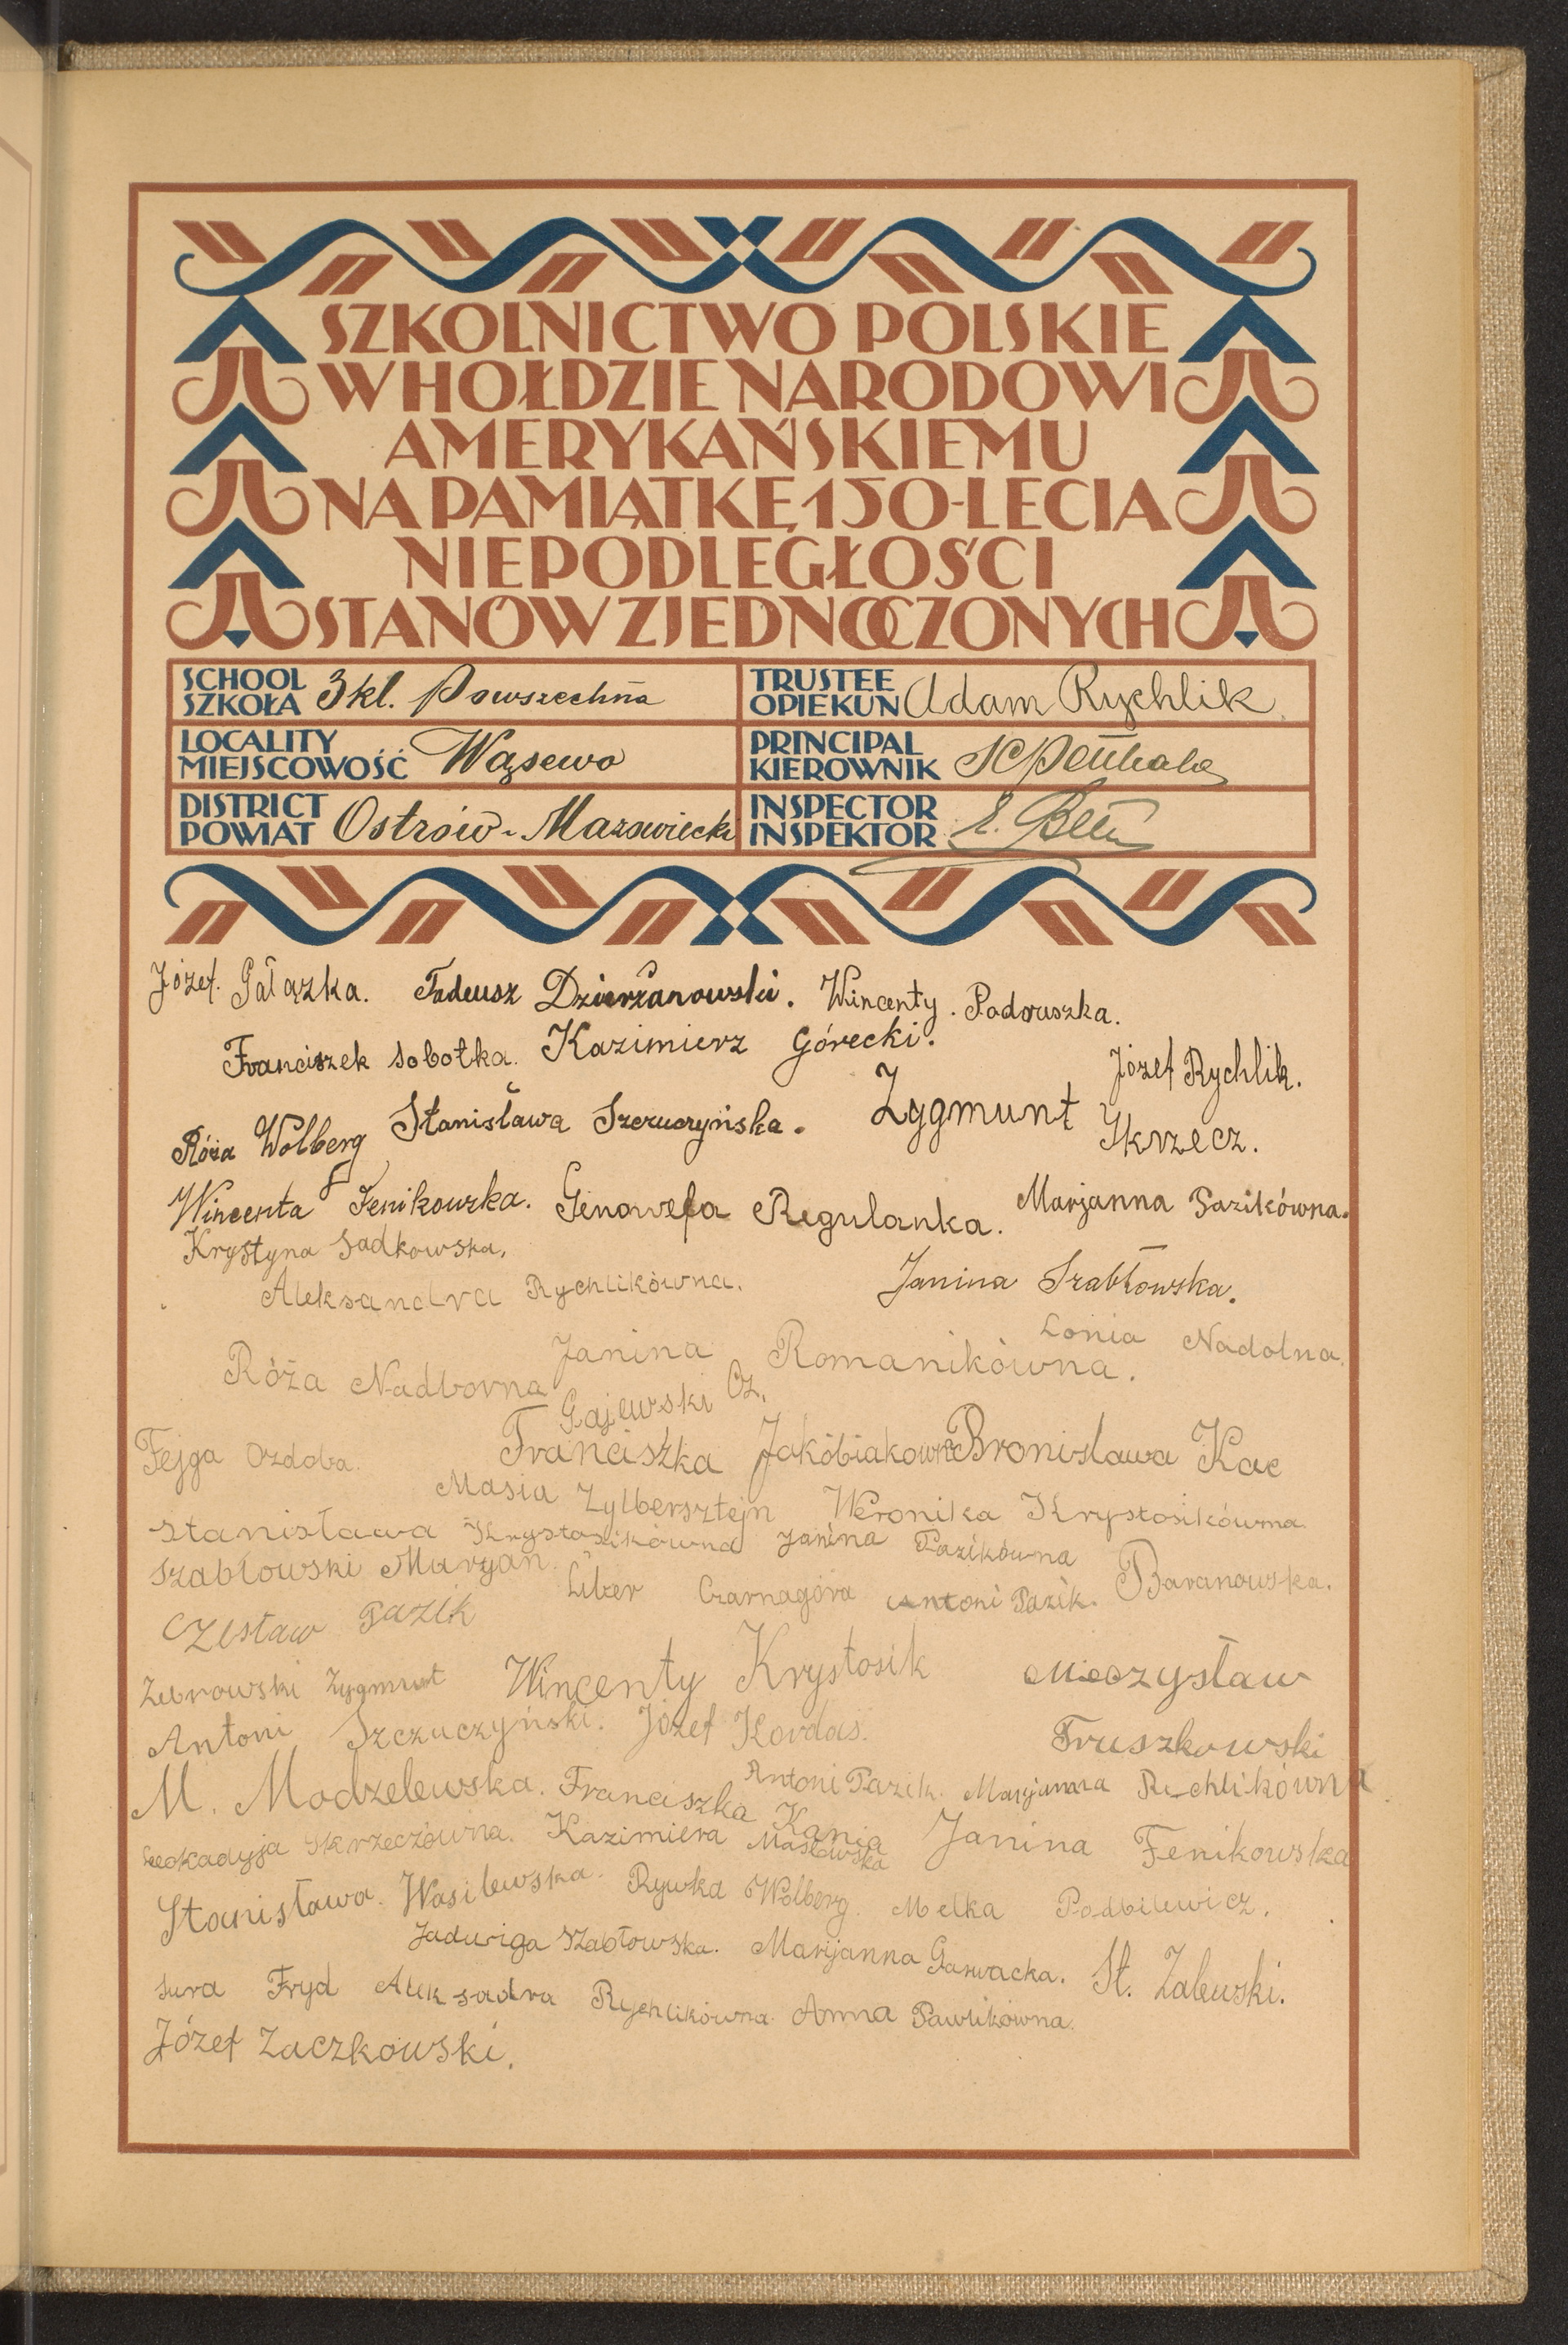 SZKOLNICTWO POLSKIE
W HOŁDZIE NARODOWI
AMERYKAŃSKIEMU
NA PAMIĄTKĘ 150-LECIA
NIEPODLEGŁOŚCI
STANÓW ZJEDNOCZONYCH
SCHOOL
SZKOŁA 3 kl. Powszechna
TRUSTEE
OPIEKUN Adam Rychlik
LOCALITY
MIEJSCOWOŚĆ Wąsewo
PRINCIPAL
KIEROWNIK
DISTRICT
POWIAT Ostrów-Mazowiecki
INSPECTOR
INSPEKTOR
Józef. Gałązka. Tadeusz Dzierżanowski. Wincenty. Podruszka.
Franciszek Sobotka. Kazimierz Górecki. Józef Rychlik.
Róża Wolberg Stanisława Szczuczyńska. Zygmunt Skrzecz.
Wincenta Fenikowska. Genowefa Regulanka. Marjanna Pazikówna.
Krystyna Sadkowska.
Aleksandra Rychlikówna. Janina Szabłowska.
Róża Nadborna Janina Romanikówna. Lonia Nadolna.
Gajewski Cz.
Fejga Ozdoba. Franciszka Jakóbiakówna Bronisława Kac
Masia Zylbersztejn Weronika Krystosikówna
Stanisława Krystosikówna Janina Pazikówna
Szabłowski Maryan. Liber Czarnagóra Antoni Pazik. Baranowska.
Czesław Pazik
Żebrowski Zygmunt Wincenty Krystosik Mieczysław
Antoni Szczuczyński. Józef Kordas. Truszkowski
M. Modzelewska. Franciszka Kania Antoni Pazik. Marjanna Rychlikówna
Leokadyja Skrzeczówna. Kazimiera Masłowska Janina Fenikowska
Stanisława. Wasilewska. Rywka Wolberg. Melka Podbilewicz.
Jadwiga Szabłowska. Marijanna Garwacka. St. Zalewski.
Sura Fryd Aleksadra Rychlikówna. Anna Pawlikówna.
Józef Zaczkowski.